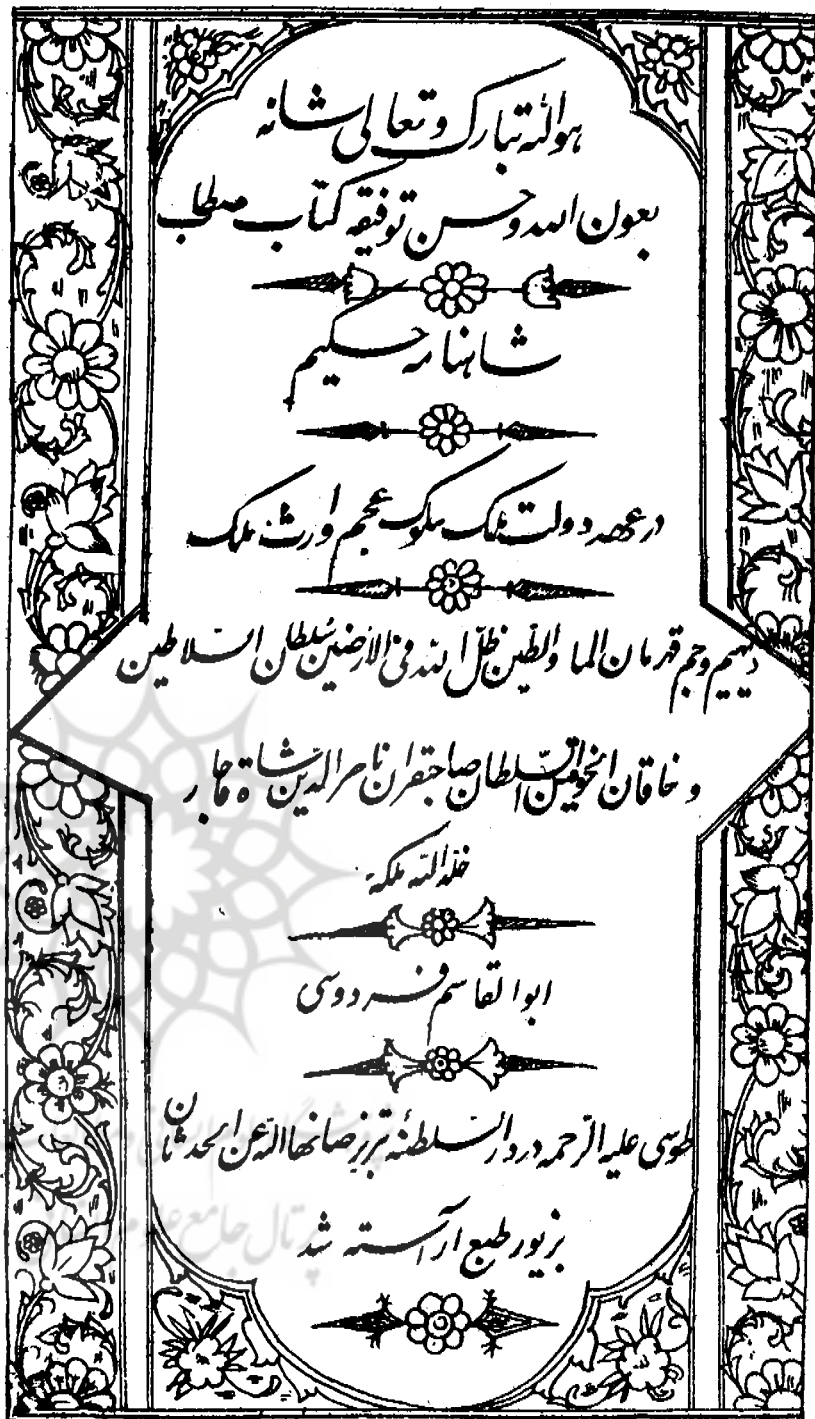 هوالله تبارک وتعالی شانه
بعون الله وحسن توفیقه کتاب مستطاب
شاهنامه حکیم
درعهد دولت ملک ملوک عجم وارث ملک
دیهیم وجم قهرمان الماء والطین ظلّ الله فی الارضین سُلطان السّلاطین
و خاقان الخواقین السّلطان صاحبقران ناصرالدّین شاه قاجار
خلد الله ملکه
ابوالقاسم فردوسی
طوسی علیه الرّحمه در دار السّلطنهٔ تبریز صانها الله عن الحدثان
بزیور طبع آراسته شد
پژوهشگاه علوم انسانی و
پرتال جامع علوم